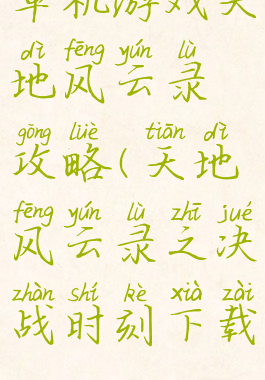 单机游戏天
dì fēng yún lù
地风云录
gōng lüè tiān dì
攻略(天地
fēng yún lù zhī jué
风云录之决
zhàn shí kè xià zài
战时刻下载